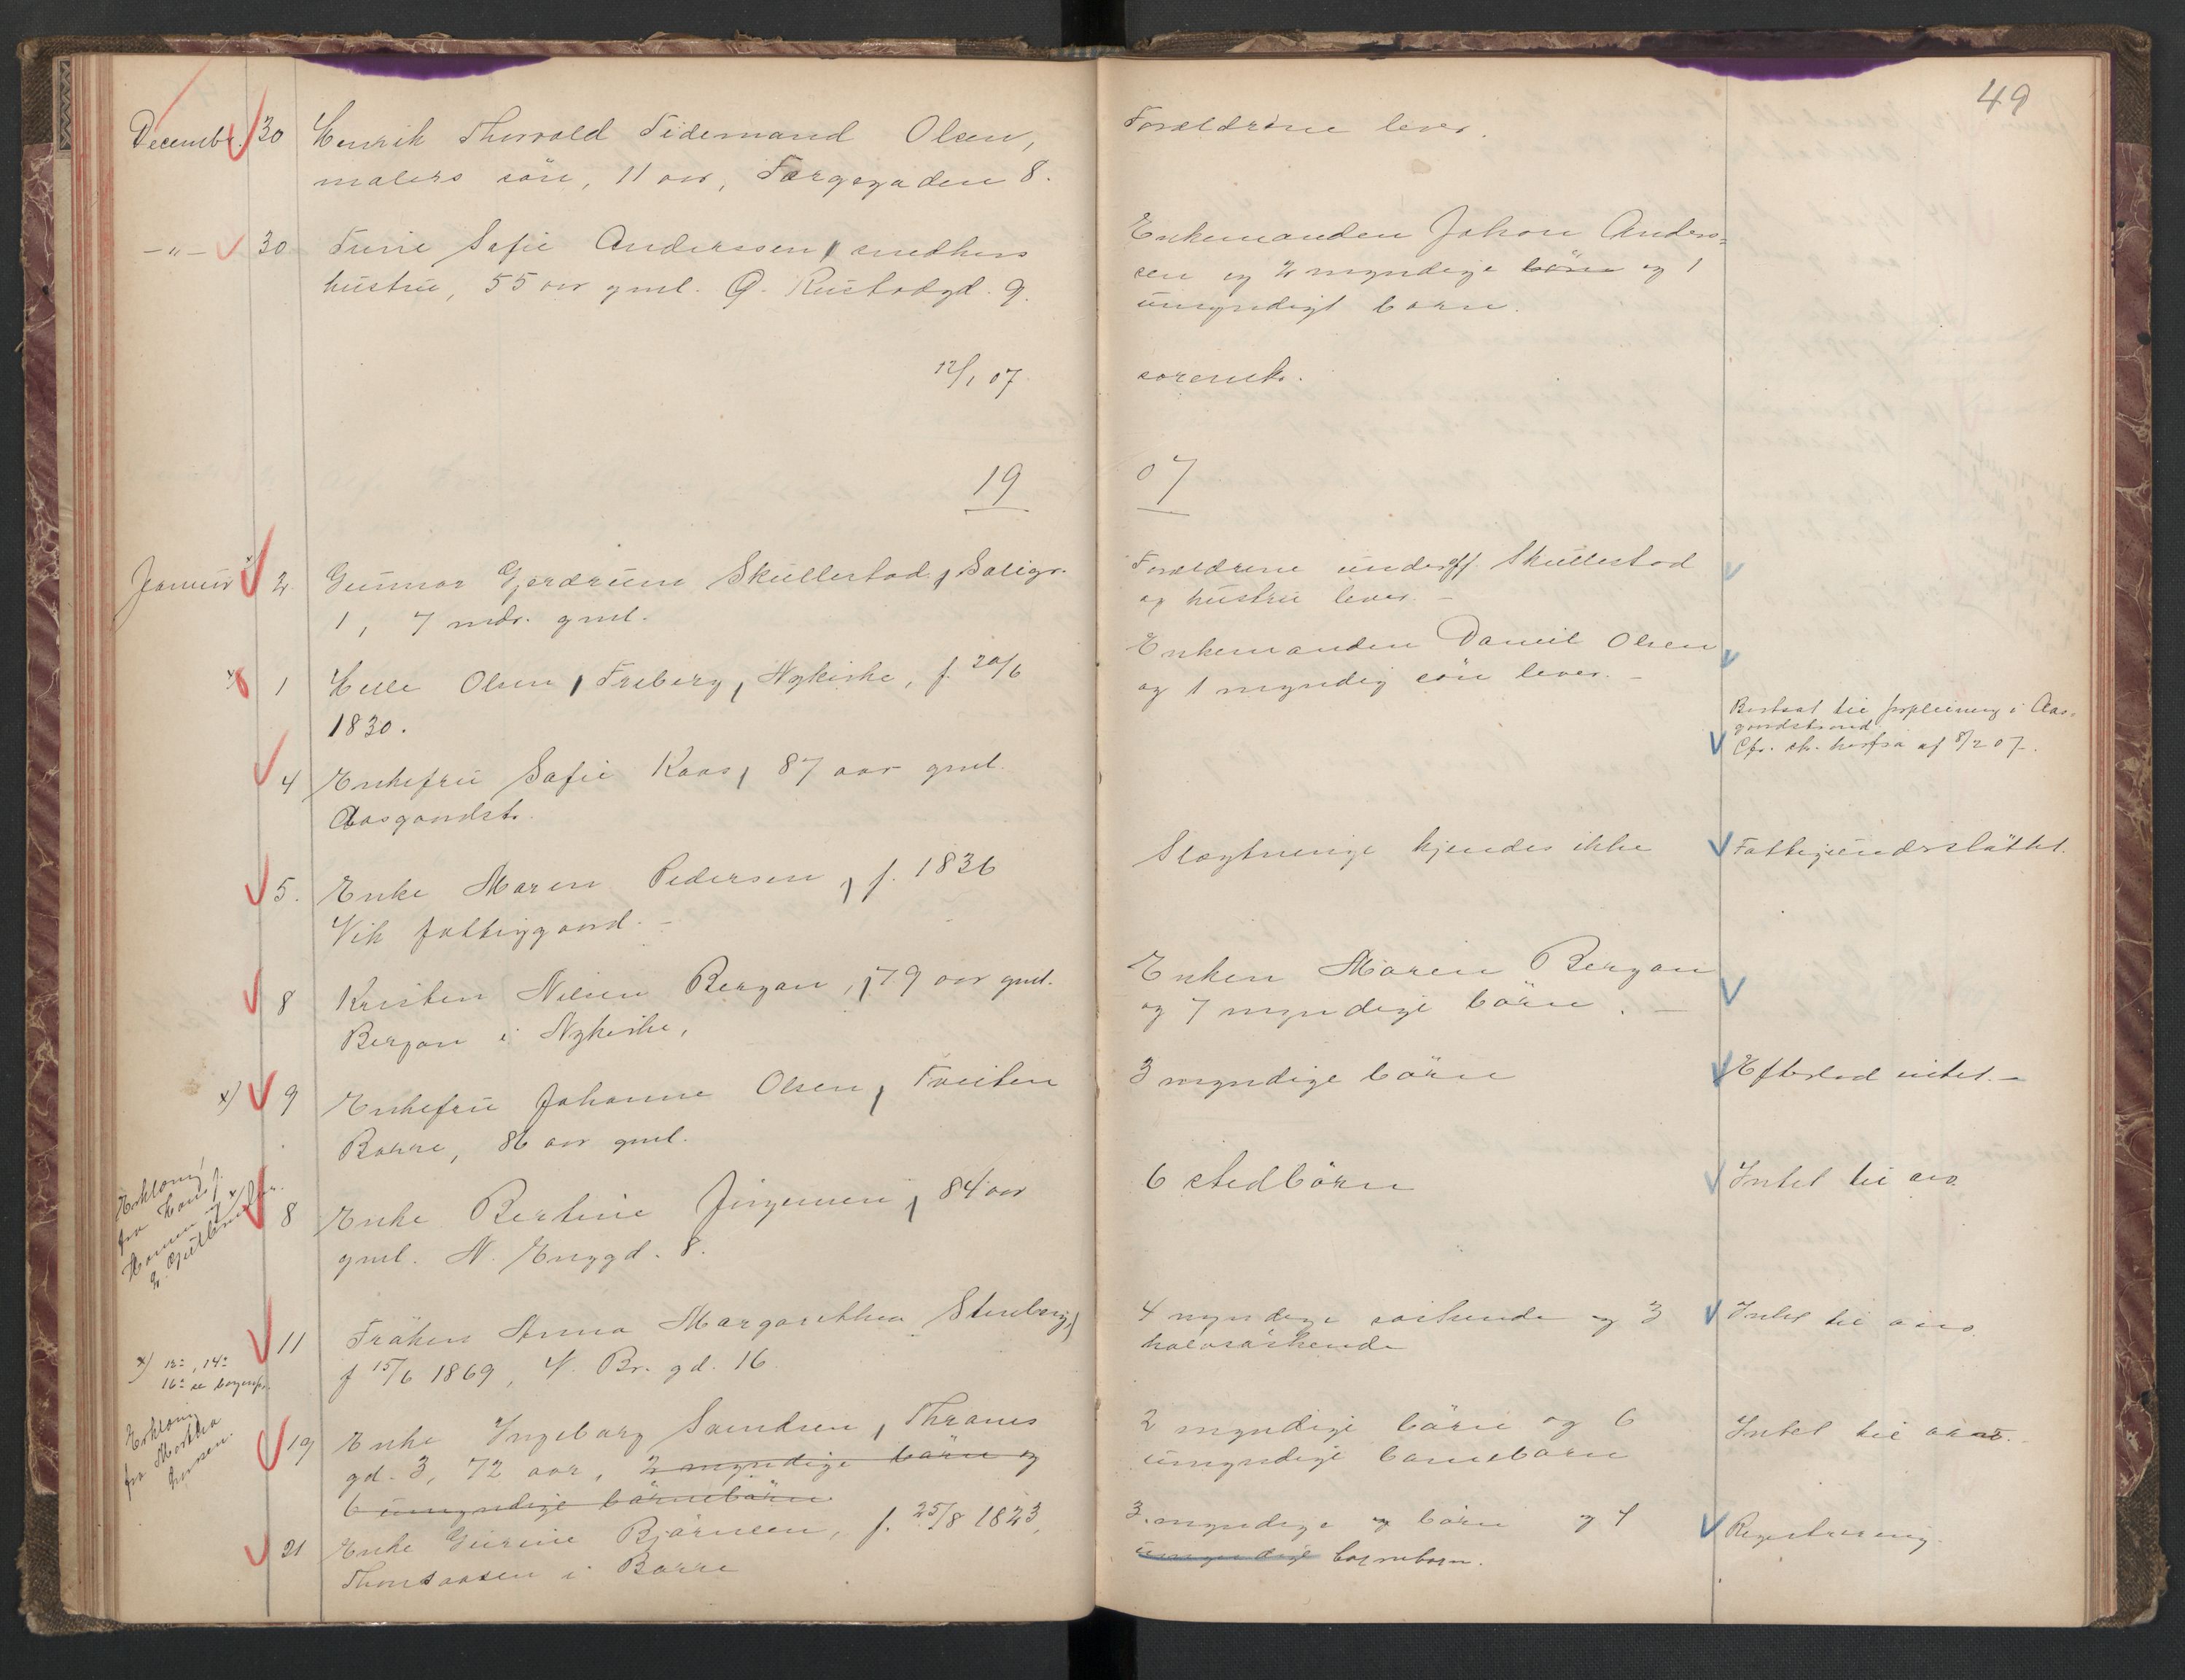 49
Decembr. 30 Henrik Thorvald Tidemand Olsen,
malers sön, 11 aar, Færgegaden 8.
Forældrene lever.
-"- 30 Sofie Anderssen, smeds
hustru, 55 aar gml. Ø. Rustadgd. 9.
Enkemanden Johan Anders=
sen og 2 myndige börn og 1
umyndigt barn.
12/1 07.
sorensk.
19
07
Januar x) 2 Gunnar Gjerdrum Skullestad, Solligt.
1, 7 mdr. gml.
Forældrene underoff. Skullestad
og hustru lever. -
x) 1 Helle Olsen, Freberg, Nykirke, f. 20/6
1830.
Enkemanden Daniel Olsen
og 1 myndig sön lever. -
4 Enkefru Sofie Kaas, 87 aar gml.
Aasgaardstr.
Bortsat til forpleining i Aas-
gaardstrand
Cfr. sk. herfra af 8/2 07.
5. Enke Maren Pedersen, f. 1836
Vik fattiggaard. -
Slægtninge kjendes ikke
Fattigunderstöttet.
8 Kristen Nilsen Bergan, 79 aar gml.
Bergan i Nykirke,
Enken Maren Bergan
og 7 myndige börn. -
x) 9 Enkefru Johanne Olsen, Tveiten
Borre, 86 aar gml.
3 myndige börn
Efterlod intet. -
Erklæring
fra Hans J.
Hansen og
8 Enke Bertine Jörgensen, 84 aar
gml. N. Enggd. 8.
6 stedbörn
Intet til arv.
11 Fröken Anna Margarethea Stenberg,
f 15/6 1869, V. Br. gd. 16
4 myndige söskende og 3
halvsöskende
Intet til arv.
x) 12=, 14=
16= se
Erklæring
fra Marthea
19 Enke Ingeborg Svendsen, Thranes
gd. 3, 72 aar, 2 myndige börn og
6 umyndige börnebörn
2 myndige börn og 6
umyndige barnebörn
Intet til arv. -
21 Enke Gurine Bjørnsen, f. 25/8 1823,
Thonsaasen i Borre
3. myndige og börn og 4
umyndige barnebarn.
Registrering.